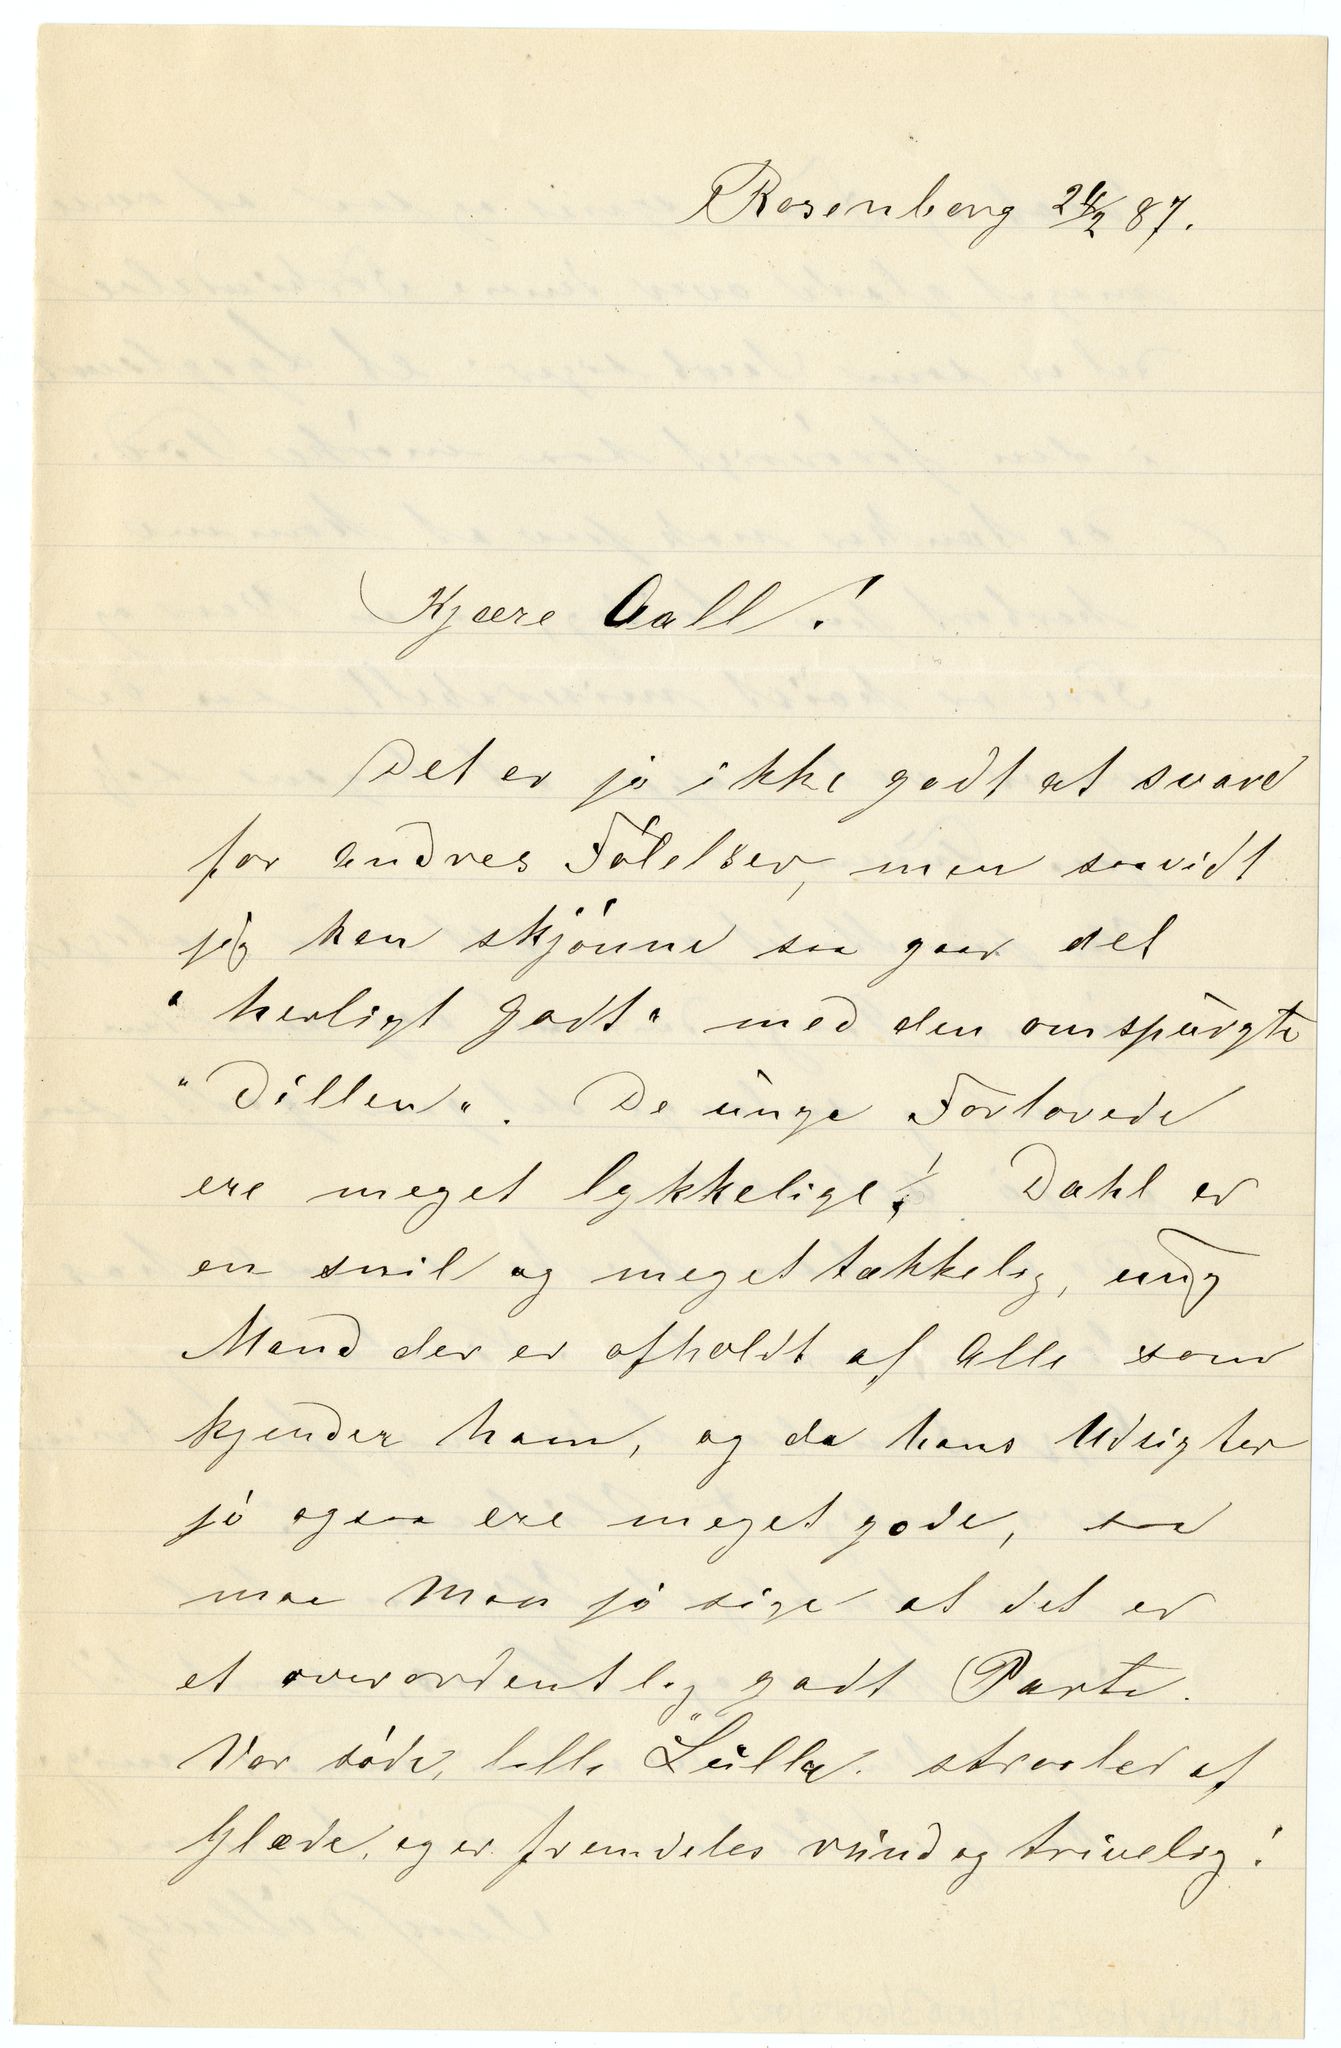 Rosenborg 24/2 87.
Kjære Aall!
Det er jo ikke godt at svare
for andres Følelser, men saavidt
jeg kan skjønne saa gaar det
"herligt godt" med den omspurgte
"Dillen". De unge Forlovede
ere meget lykkelige! Dahl er
en snil og meget tækkelig, ung
Mand der er afholdt af Alle som
kjender ham, og da hans Udsigter
jo ogsaa ere meget gode, saa
maa Man jo sige at det er
et overordentlig godt Parti.
Vor søde, lille "Lulla" straaler af
Glæde, og er fremdeles rund og trivelig!